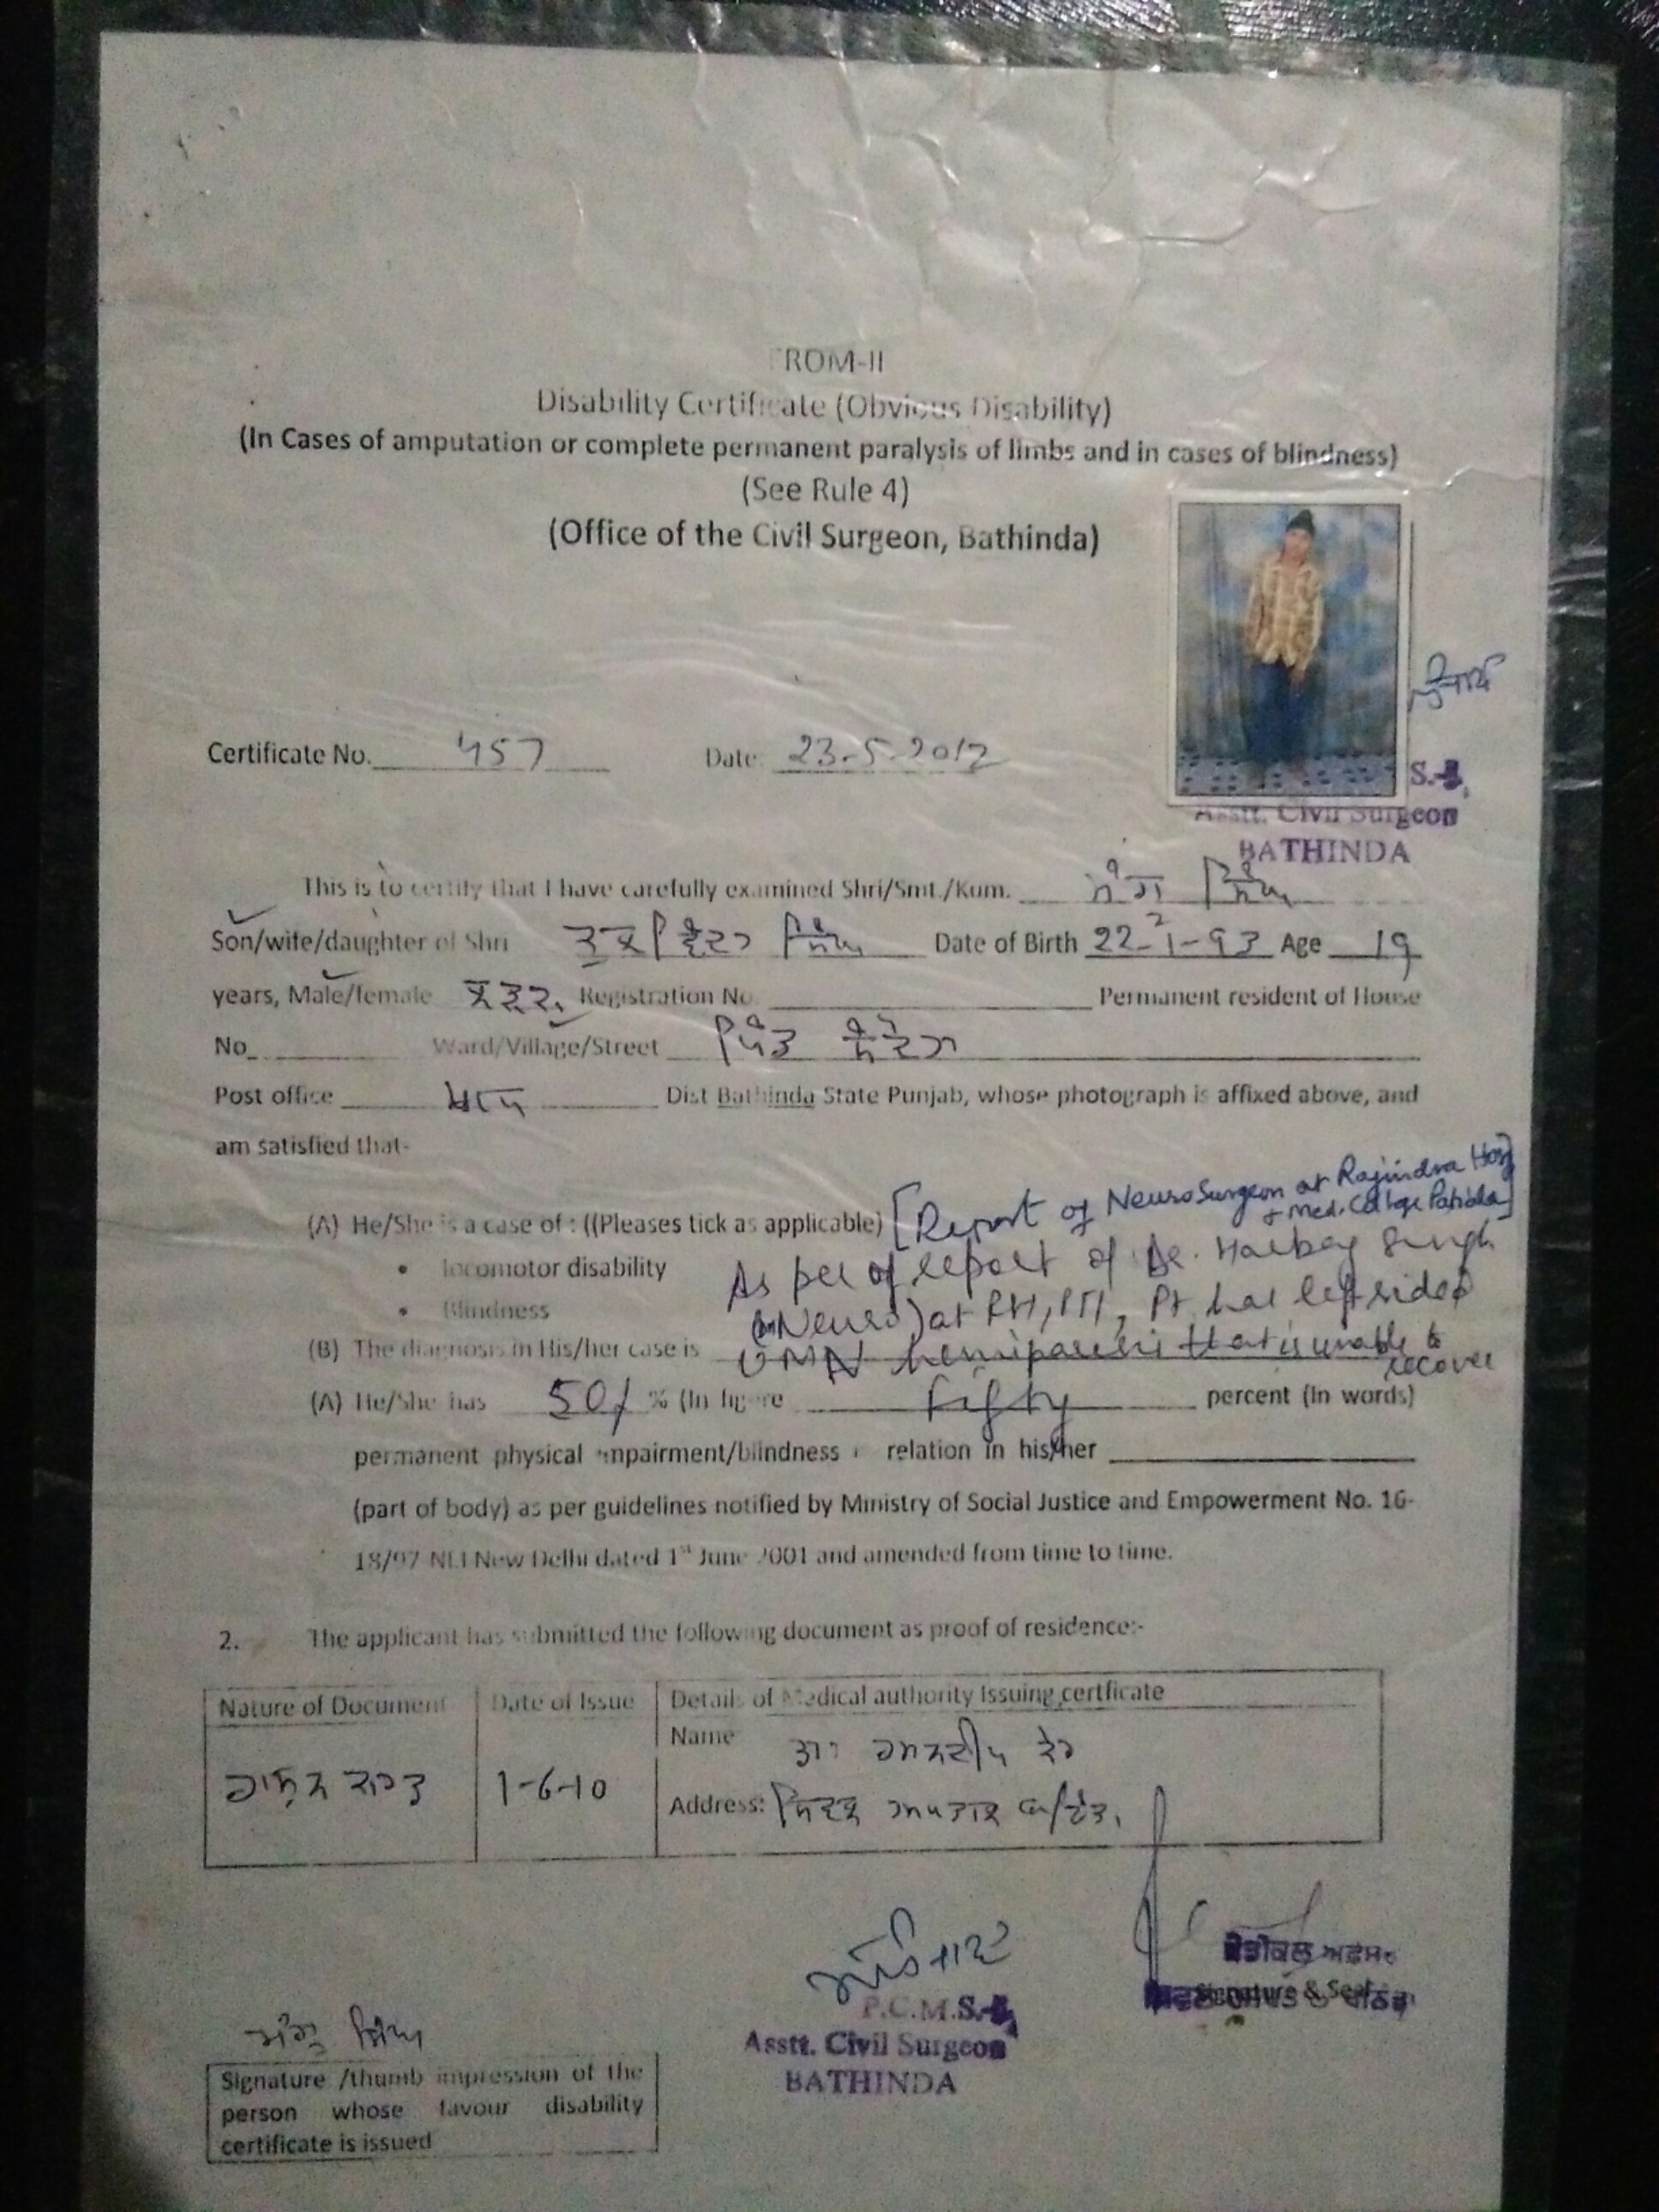 FROM-II
Disability Certificate (Obvious Disability)
(In Cases of amputation or complete permanent paralysis of limbs and in cases of blindness)
(See Rule 4)
(Office of the Civil Surgeon, Bathinda)
Certificate No. 457 Date: 23-5-2012
Asstt. Civil Surgeon
BATHINDA
This is to certify that I have carefully examined Shri/Smt./Kum. ਸਿੰਘ
Son/wife/daughter of Shri ਸਿੰਘ Date of Birth 22-1-93 Age 19
years, Male/female Registration No. Permanent resident of House
No. Ward/Village/Street ਪਿੰਡ
Post office Dist Bathinda State Punjab, whose photograph is affixed above, and
am satisfied that-
[Report of NeuroSurgeon at Rajindra Hosp
& Med. College Patiala]
(A) He/She is a case of : ((Pleases tick as applicable)
• locomotor disability As per of report of Dr. Harbag Singh
• Blindness (Neuro) at RH, PTI, Pt has left sided
(B) The diagnosis in His/her case is UMN hemiparesis that is unable to
recover
(A) He/She has 50% % (In figure fifty percent (In words)
permanent physical impairment/blindness relation in his/her
(part of body) as per guidelines notified by Ministry of Social Justice and Empowerment No. 16-
18/97-NI.I New Delhi dated 1st June 2001 and amended from time to time.
2. The applicant has submitted the following document as proof of residence:-
Nature of Document Date of Issue Details of Medical authority Issuing certficate
Name ਡਾ:
ਰਾਸ਼ਨ ਕਾਰਡ 1-6-10
Address: ਸਿਵਲ ਹਸਪਤਾਲ ਬਠਿੰਡਾ
ਮੈਡੀਕਲ ਅਫਸਰ
Signature & Seal
P.C.M.S.-I,
Asstt. Civil Surgeon
BATHINDA
ਸਿੰਘ
Signature /thumb impression of the
person whose favour disability
certificate is issued